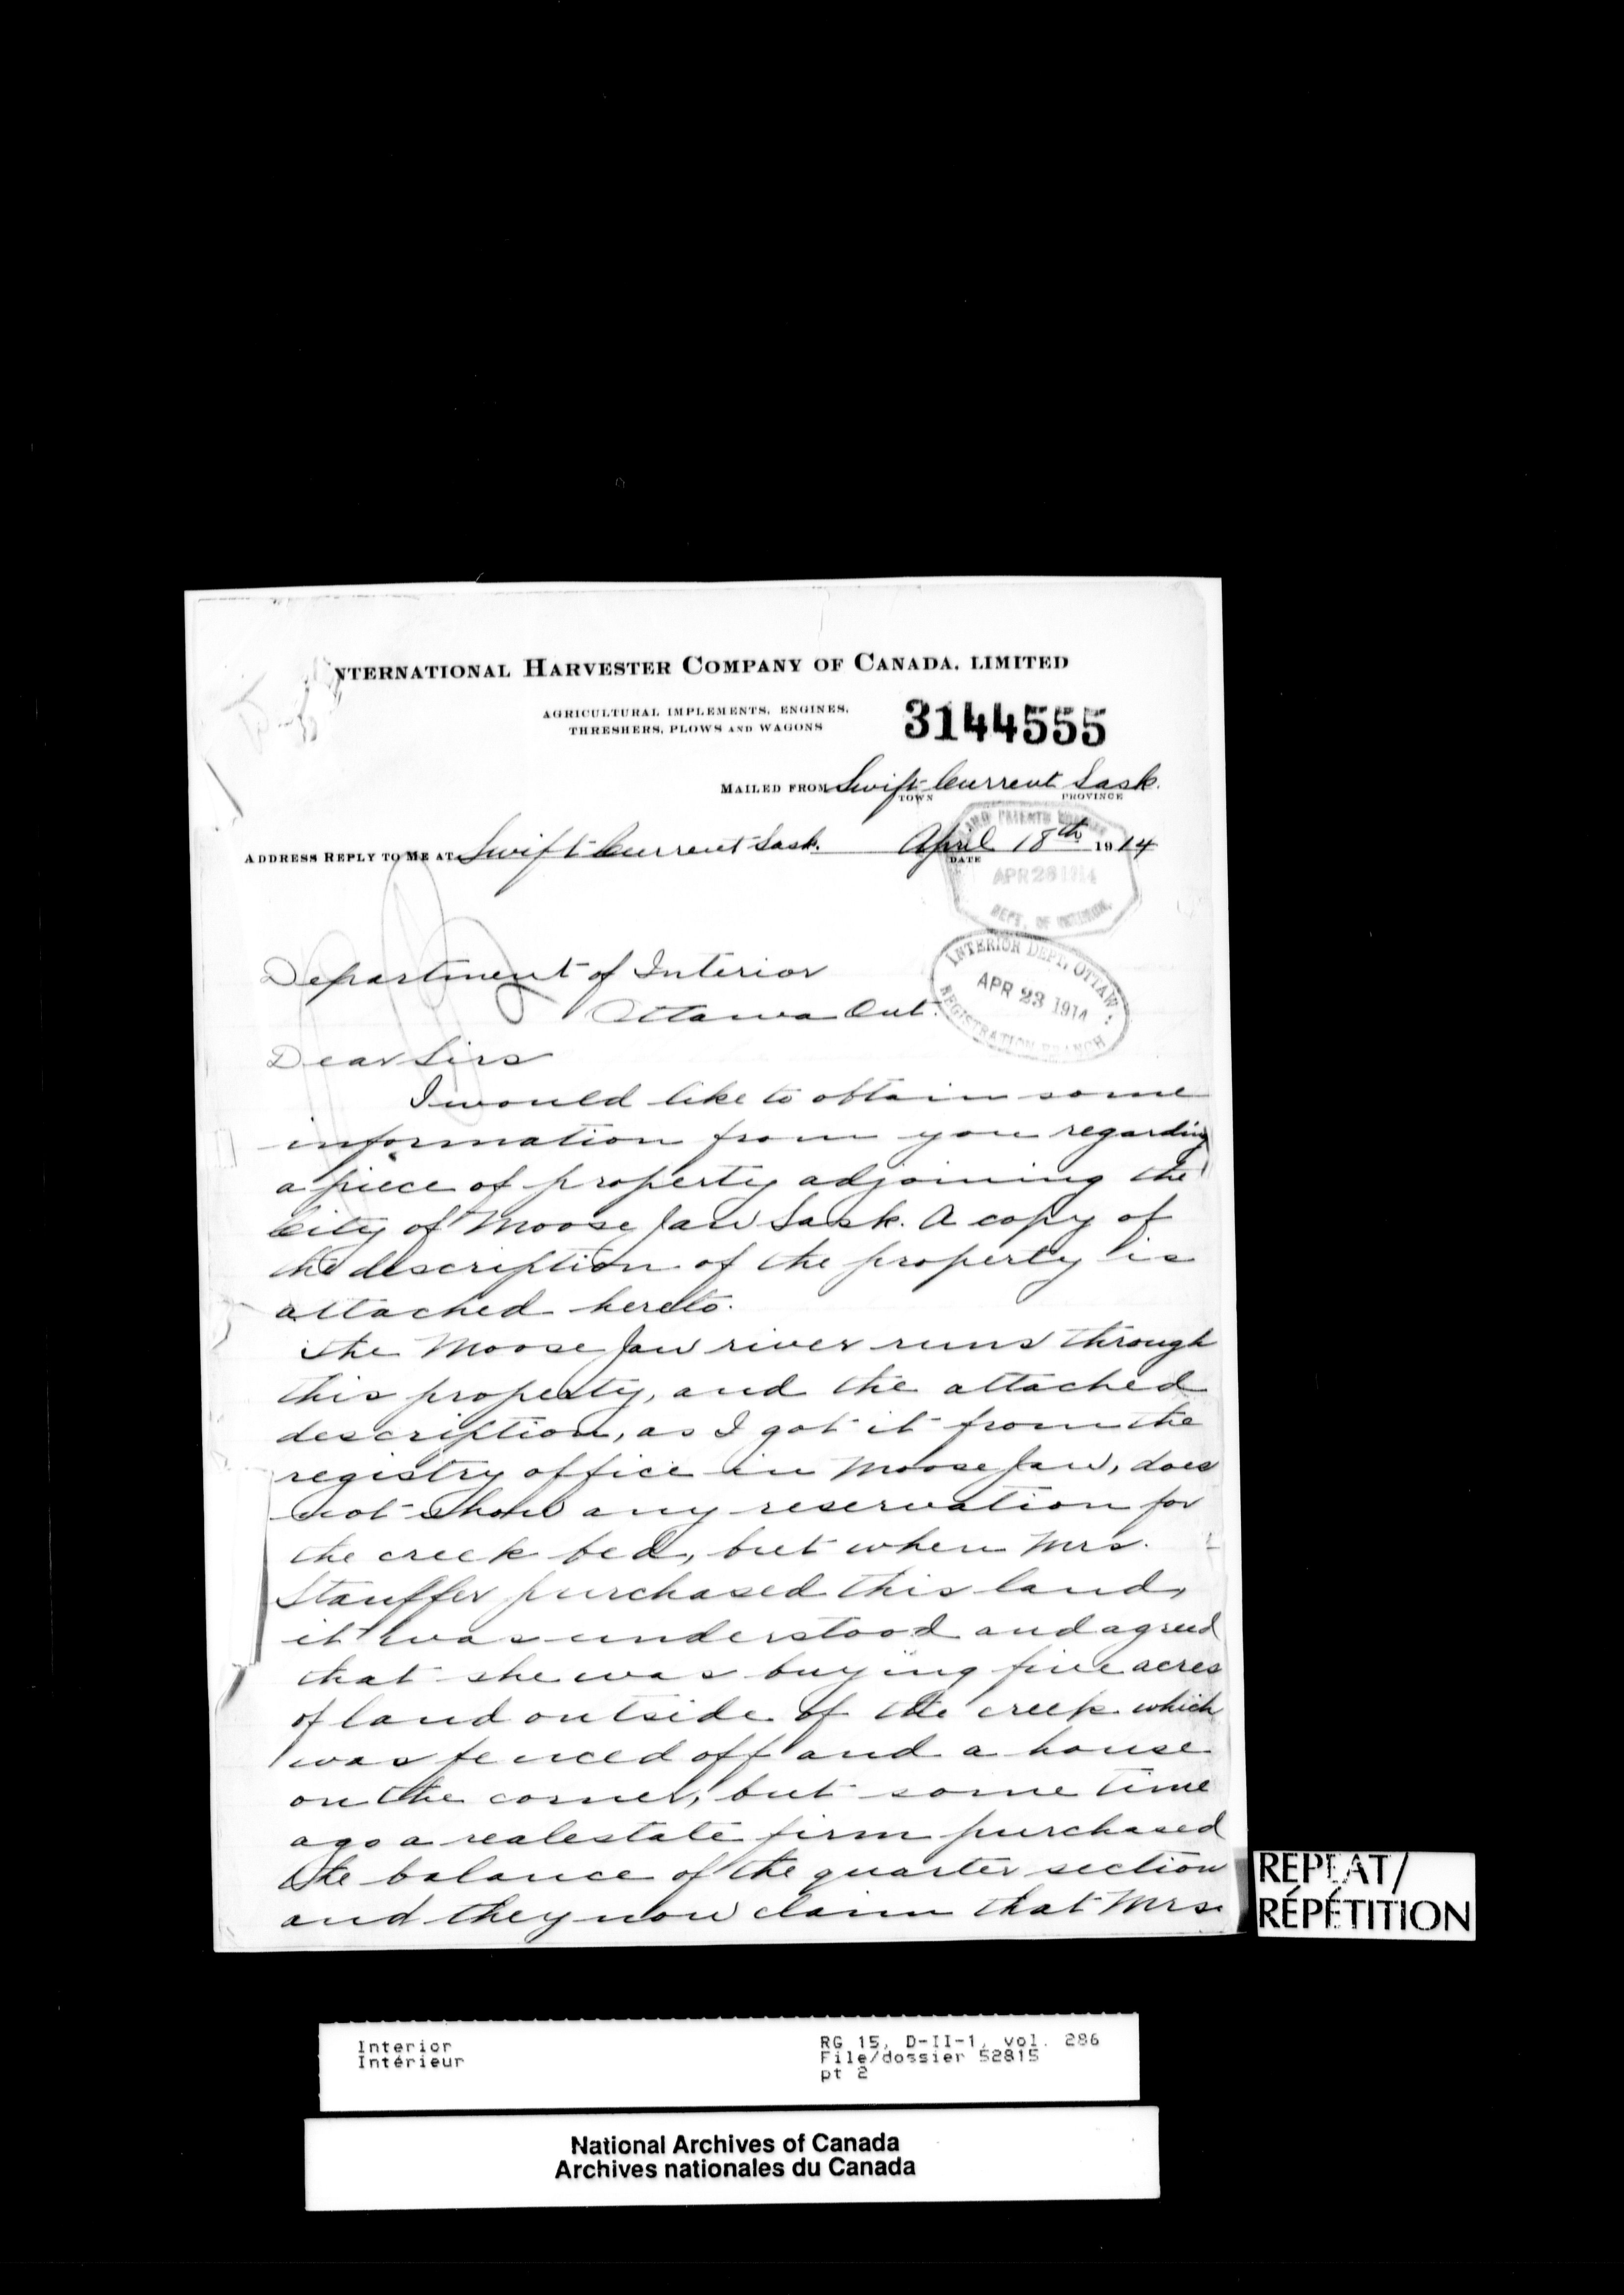 INTERNATIONAL HARVESTER COMPANY OF CANADA. LIMITED
AGRICULTURAL IMPLEMENTS, ENGINES,
THRESHERS, PLOWS AND WAGONS
3144555
MAILED FROM Swift Current Sask.
TOWN PROVINCE
ADDRESS REPLY TO ME AT Swift Current Sask. April 18th 1914
DATE
LAND PATENTS
APR 28 1914
DEPT. OF INTERIOR.
Department of Interior
Ottawa Ont.
INTERIOR DEPT. OTTAWA
APR 23 1914
REGISTRATION BRANCH
Dear Sirs
I would like to obtain some
information from you regarding
a piece of property adjoining the
City of Moose Jaw Sask. A copy of
the description of the property is
attached hereto.
The Moose Jaw river runs through
this property, and the attached
description, as I got it from the
registry office in Moose Jaw, does
not show any reservation for
the creek bed, but when Mrs.
Stauffer purchased this land,
it was understood and agreed
that she was buying five acres
of land outside of the creek which
was fenced off and a house
on the corner, but some time
ago a realestate firm purchased
the balance of the quarter section
and they now claim that Mrs.
REPEAT/
RÉPÉTITION
Interior RG 15, D-II-1, vol. 286
Intérieur File/dossier 52815
pt 2
National Archives of Canada
Archives nationales du Canada